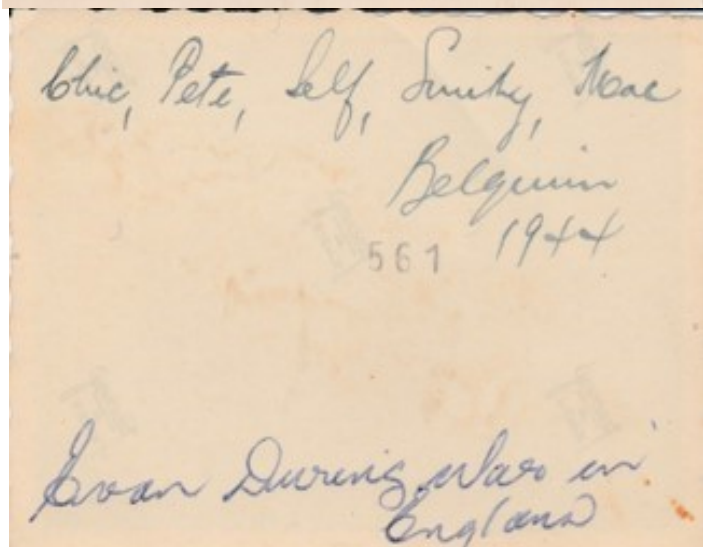 Chic, Pete, Self, Smithy, Mac
Belguim
1944
561
Evan During War in
England